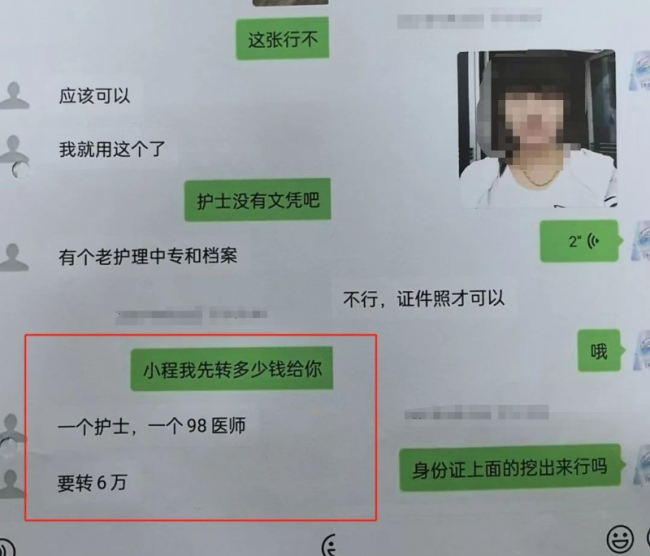 这张行不
应该可以
我就用这个了
护士没有文凭吧
有个老护理中专和档案
小程我先转多少钱给你
一个护士，一个98医师
要转6万
2"
不行，证件照才可以
哦
身份证上面的挖出来行吗